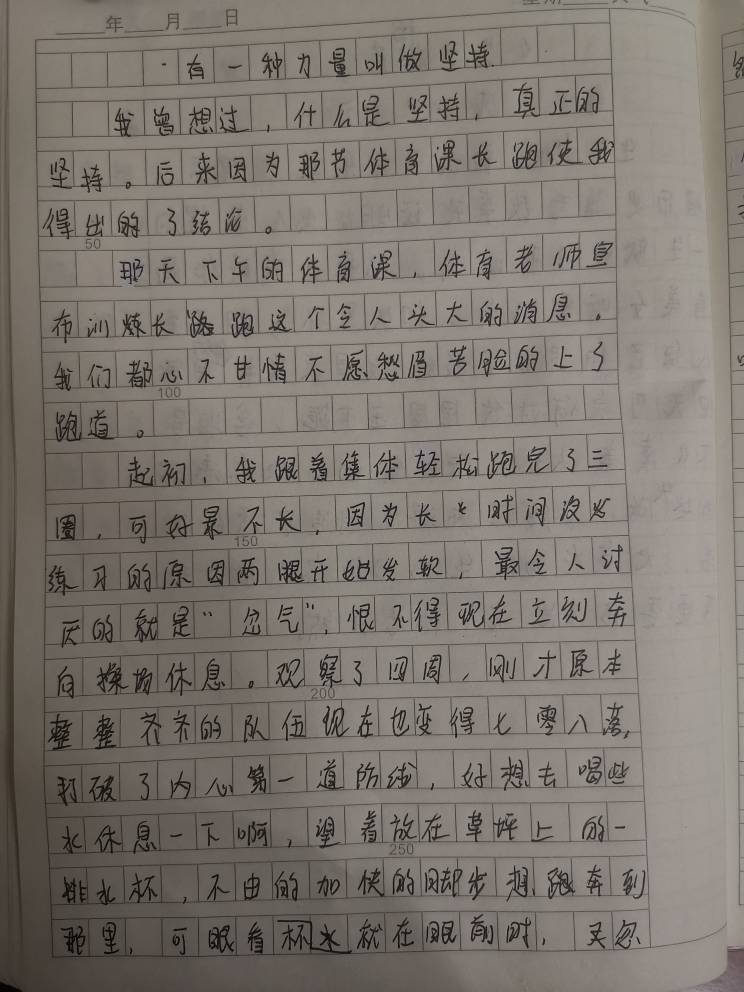 年 月 日
有一种力量叫做坚持.
我曾想过，什么是坚持，真正的
坚持。后来因为那节体育课长跑使我
得出的了结论。
50
那天下午的体育课，体育老师宣
布训炼长跑这个令人头大的消息。
我们都心不甘情不愿愁眉苦脸的上了
100
跑道。
起初，我跟着集体轻松跑完了三
圈，可好景不长，因为长时间没必
150
练习的原因两腿开始发软，最令人讨
厌的就是“岔气”，恨不得现在立刻奔
向操场休息。观察了四周，刚才原本
200
整整齐齐的队伍现在也变得七零八落，
打破了内心第一道防线，好想去喝些
水休息一下啊，望着放在草坪上的一
250
排水杯，不由的加快的脚步想跑奔到
那里，可眼看杯水就在眼前时，又忽